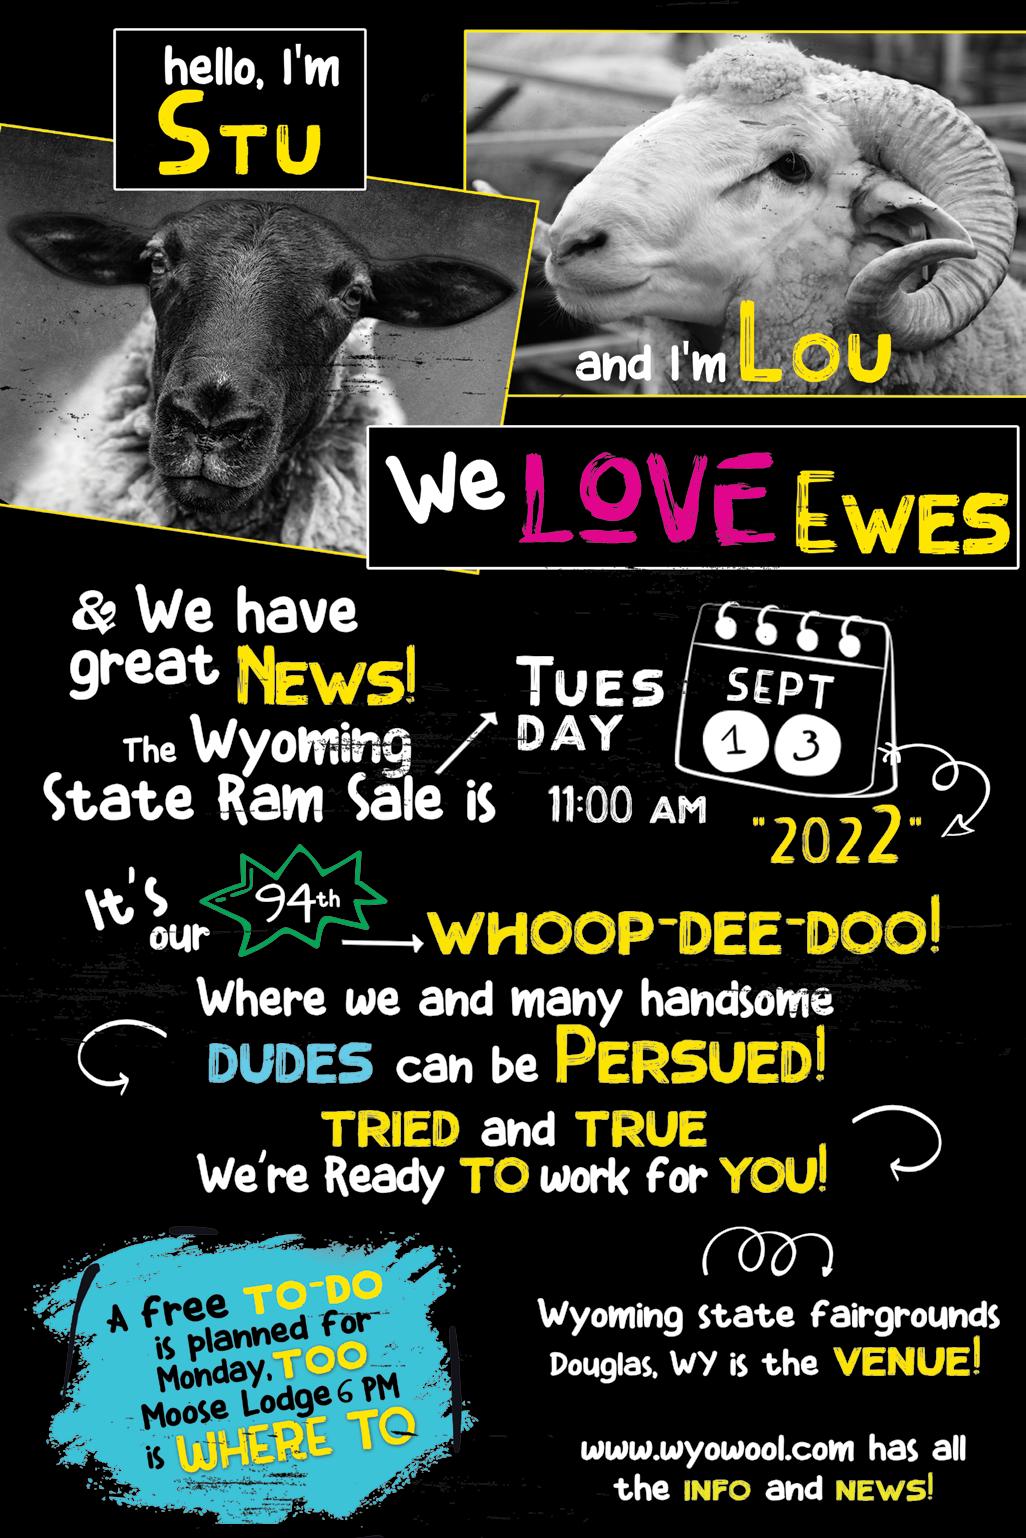 hello, I'm
STU
and I'm LOU
We LOVE EWES
& We have
great NEWS!
The Wyoming
State Ram Sale is
TUES
DAY
11:00 AM
SEPT
13
"2022"
It's
our
94th
WHOOP-DEE-DOO!
Where we and many handsome
DUDES can be PERSUED!
TRIED and TRUE
We're Ready TO work for YOU!
A free TO-DO
is planned for
Monday, TOO
Moose Lodge 6 PM
is WHERE TO
Wyoming state fairgrounds
Douglas, WY is the VENUE!
www.wyowool.com has all
the INFO and NEWS!